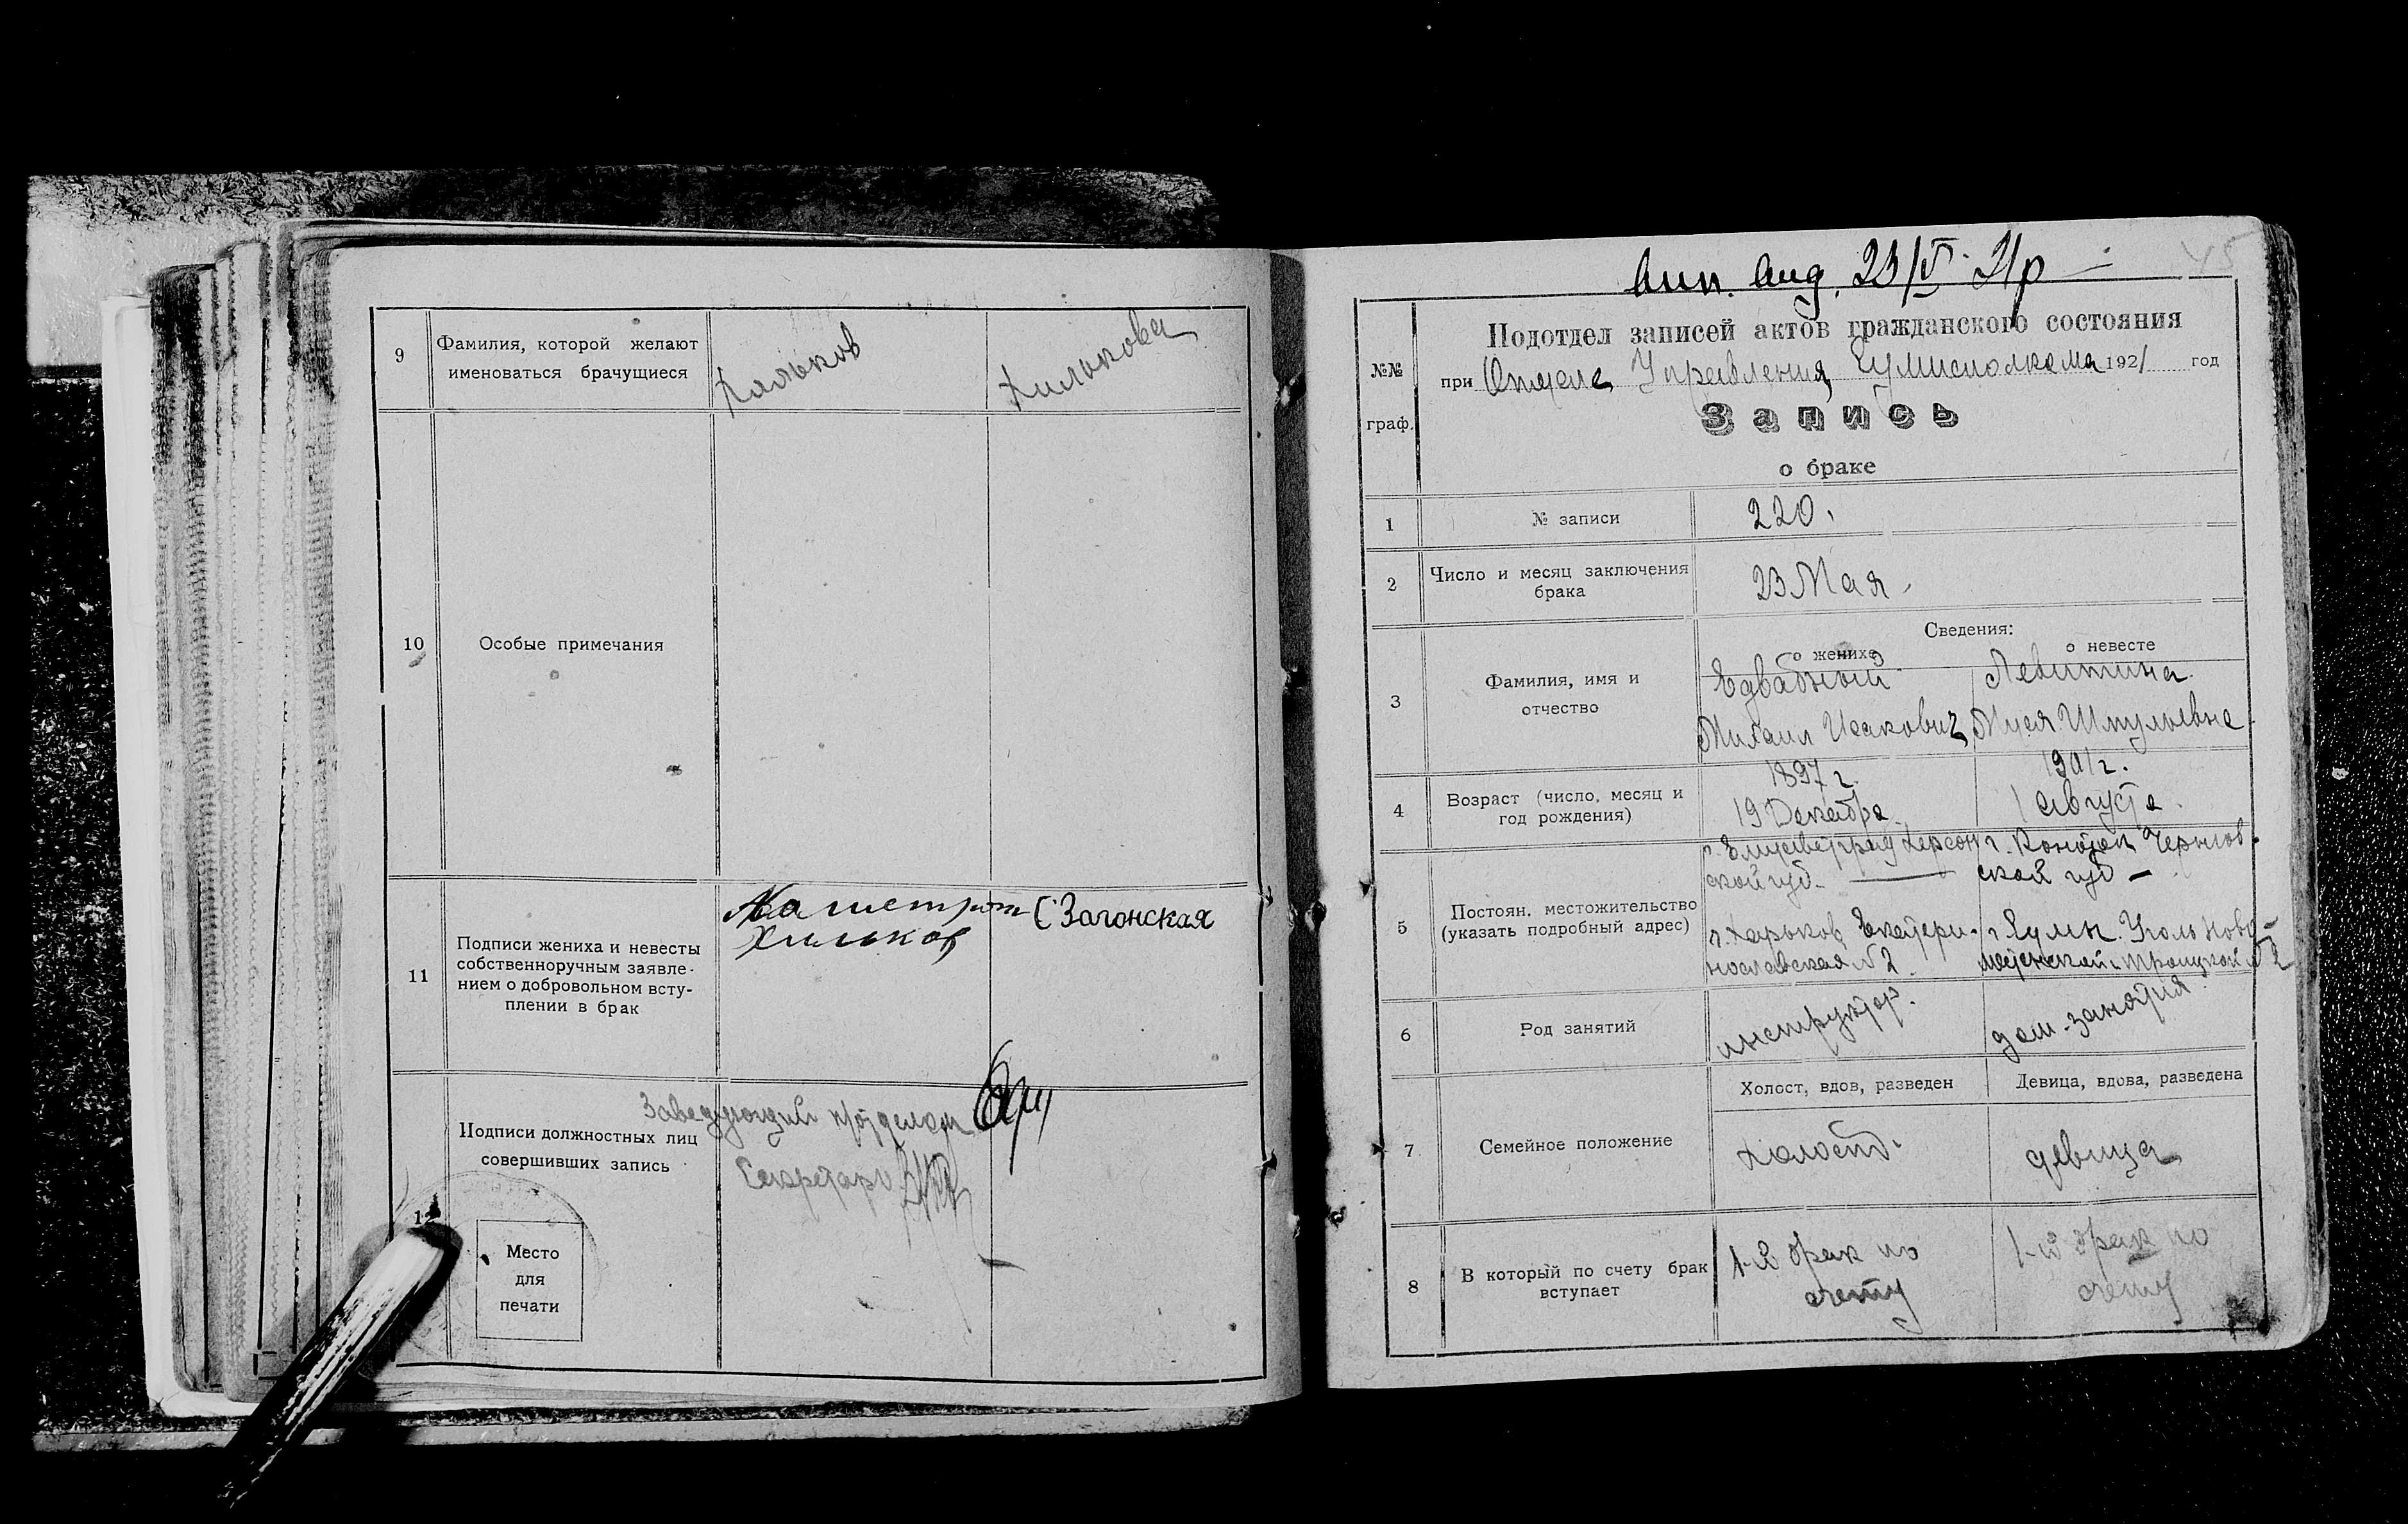 9
Фамилия, которой желают
именоваться брачущиеся
Хильков
Хилькова
10
Особые примечания
11
Подписи жениха и невесты
собственноручным заявле-
нием о добровольном всту-
плении в брак
Хильков
Загонская
Подписи должностных лиц
совершивших запись
Заведующий п/отделом
Секретарь
Место
для
печати
45
23/V 21
№№
граф.
Подотдел записей актов гражданского состояния
при Отделе Управления 1921 год
Запись
о браке
1
№ записи
220.
2
Число и месяц заключения
брака
23 Мая
3
Фамилия, имя и
отчество
Сведения:
о женихе
о невесте
Едвабный
Михаил Исакович
Левитина
Муся Шмульевна
4
Возраст (число, месяц и
год рождения)
1897 г.
19 Декабра
1901 г.
1 августа
5
Постоян. местожительство
(указать подробный адрес)
г. Елисаветград Херсон
ской губ.
г. Харьков Екатери-
нославская № 2
г. Конотоп Чернигов
ской губ
6
Род занятий
инструктор.
дом. занятия.
7
Семейное положение
Холост, вдов, разведен
Девица, вдова, разведена
холост.
девица
8
В который по счету брак
вступает
1-й брак по
счету
1-й брак по
счету